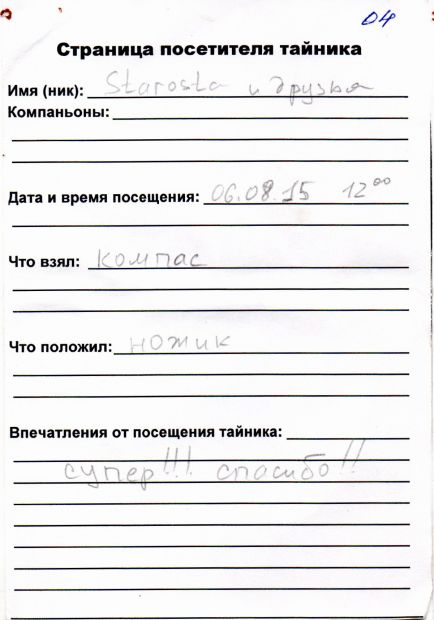 04
Страница посетителя тайника
Имя (ник): Starosta и друзья
Компаньоны:
Дата и время посещения: 06.08.15 12⁰⁰
Что взял: компас
Что положил: ножик
Впечатления от посещения тайника:
супер!!! спасибо!!